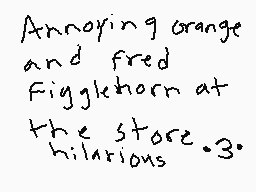 Annoying orange
and fred
figglehorn at
the store
hilarious •3•